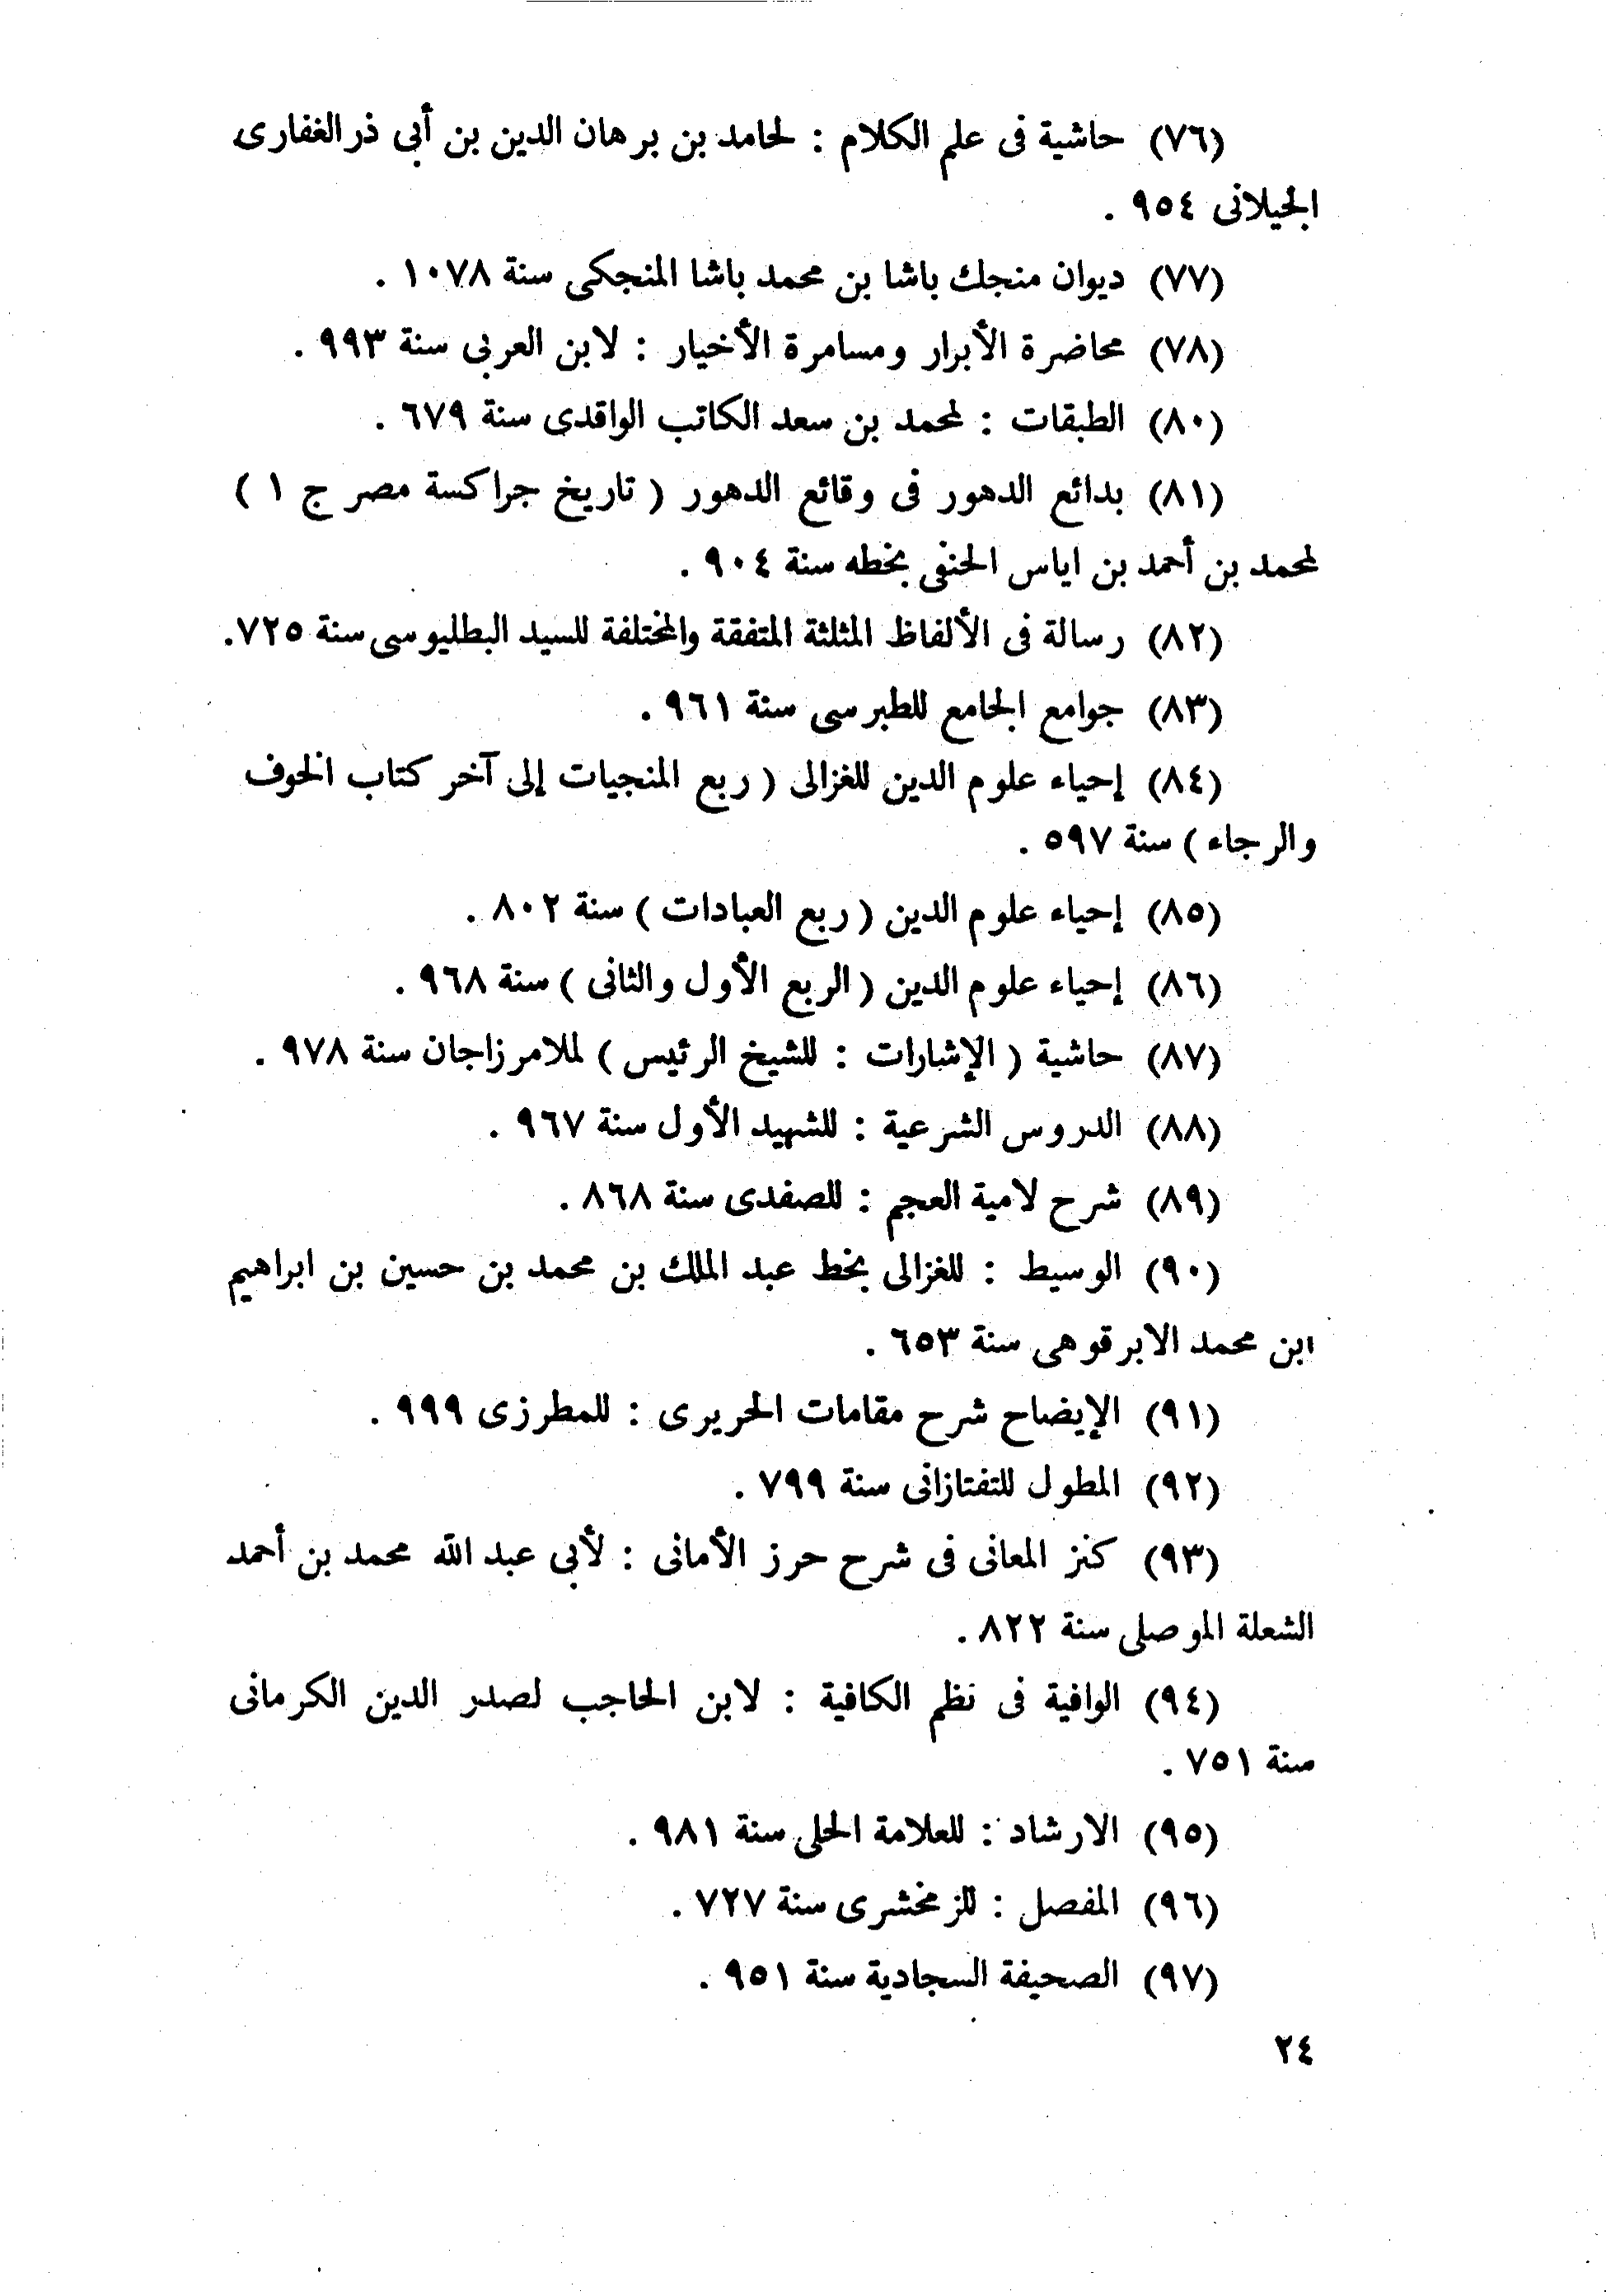 (٧٦) حاشية فى علم الكلام : لحامد بن برهان الدين بن أبى ذر الغفارى
الجيلانى ٩٥٤ .
(٧٧) ديوان منجك باشا بن محمد باشا المنجكى سنة ١٠٧٨ .
(٧٨) محاضرة الأبرار ومسامرة الأخيار : لابن العربى سنة ٩٩٣ .
(٨٠) الطبقات : لمحمد بن سعد الكاتب الواقدى سنة ٦٧٩ .
(٨١) بدائع الدهور فى وقائع الدهور ( تاريخ جراكسة مصر ج ١ )
لمحمد بن أحمد بن اياس الحنفى بخطه سنة ٩٠٤ .
(٨٢) رسالة فى الألفاظ المثلثة المتفقة والمختلفة للسيد البطليوسى سنة ٧٢٥.
(٨٣) جوامع الجامع للطبرسى سنة ٩٦١ .
(٨٤) إحياء علوم الدين للغزالى ( ربع المنجيات إلى آخر كتاب الخوف
والرجاء ) سنة ٥٩٧ .
(٨٥) إحياء علوم الدين ( ربع العبادات ) سنة ٨٠٢ .
(٨٦) إحياء علوم الدين ( الربع الأول والثانى ) سنة ٩٦٨ .
(٨٧) حاشية ( الإشارات : للشيخ الرئيس ) لملامرزاجان سنة ٩٧٨ .
(٨٨) الدروس الشرعية : للشهيد الأول سنة ٩٦٧ .
(٨٩) شرح لامية العجم : للصفدى سنة ٨٦٨ .
(٩٠) الوسيط : للغزالى بخط عبد الملك بن محمد بن حسين بن ابراهيم
ابن محمد الابرقوهى سنة ٦٥٣ .
(٩١) الإيضاح شرح مقامات الحريرى : للمطرزى ٩٩٩ .
(٩٢) المطول للتفتازانى سنة ٧٩٩ .
(٩٣) كنز المعانى فى شرح حرز الأمانى : لأبى عبد الله محمد بن أحمد
الشعلة الموصلى سنة ٨٢٢ .
(٩٤) الوافية فى نظم الكافية : لابن الحاجب لصدر الدين الكرمانى
سنة ٧٥١ .
(٩٥) الارشاد : للعلامة الحلى سنة ٩٨١ .
(٩٦) المفصل : للزمخشرى سنة ٧٢٧ .
(٩٧) الصحيفة السجادية سنة ٩٥١ .
٢٤